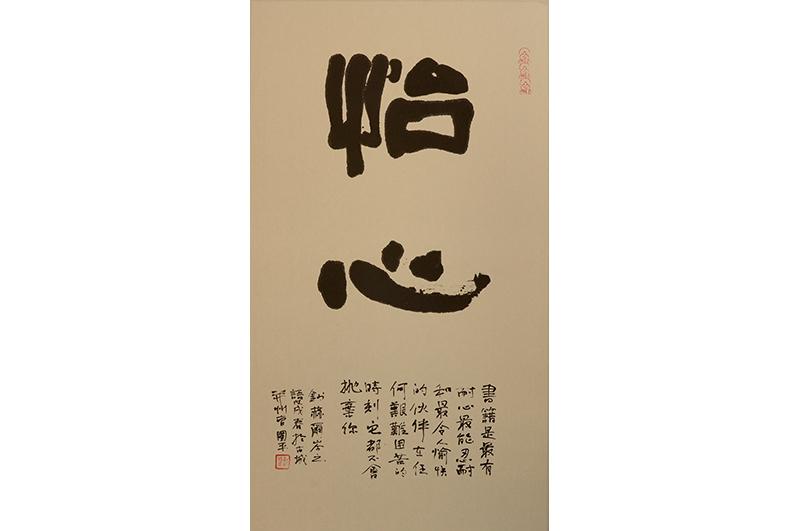 怡
心
書籍是最有
耐心最能忍耐
和最令人愉快
的伙伴在任
何艱難困苦的
時刻它都不會
抛棄你
錄蘇爾岑之
語戊春於古城
曾國平